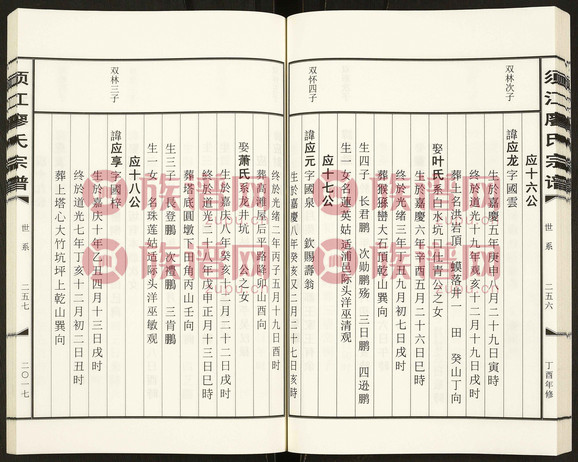 须江廖氏宗谱
世系
二五六
丁酉年修
双林次子
应十六公
諱应龙字國雲
生於嘉慶五年庚申八月二十九日寅時
終於道光十九年戊寅十二月十九日戌時
葬上名洪岩頂 蟆落井一 田 癸山丁向
娶叶氏系白水坑曰仕青公之女
生於嘉慶六年辛酉五月二十六日巳時
終於光緒三年丁丑九月初七日戌時
葬猴猻巒大石頂乾山巽向
生四子 长君鵬 次勛鵬殇 三日鵬 四逊鵬
生一女名蓮英姑适浦邑际头洋巫清观
双怀四子
应十七公
諱应元字國泉 欽赐壽翁
生於嘉慶八年癸亥又二月二十七日亥時
終於光緒二年丙子五月十九日酉時
葬高雅屋后平路降卯山酉向
娶萧氏系龙井坑 公之女
生於嘉庆八年癸亥 二月二十二日戌時
終於道光二十八年戊申正月十三日巳時
葬塔底圆墩下田角丙山壬向
生三子 長登鵬 次漕鵬 三肯鵬
生一女 名珠莲姑适际头洋巫敏观
双林三子
应十八公
諱应享字國梓
生於嘉庆十年乙丑四月十三日戌時
終於道光七年丁亥十二月初二日丑時
葬上塔心大竹坑坪上乾山巽向
须江廖氏宗谱
世系
二五七
二〇一七
族谱网